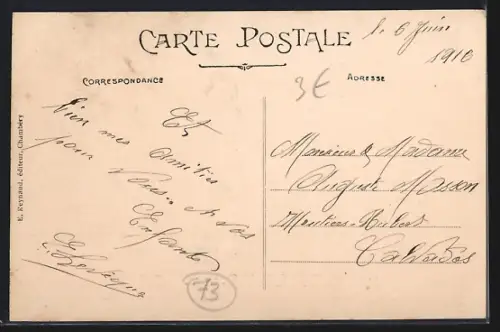 CARTE POSTALE
le 6 Juin
1910
CORRESPONDANCE
ADRESSE
3€
Et
Bien mes Amitiés
pour Vous.. et Vos
Enfants
E. Levêque
73
Monsieur & Madame
Auguste Masson
Moutiers-Hubert
Calvados
E. Reynaud, éditeur, Chambéry